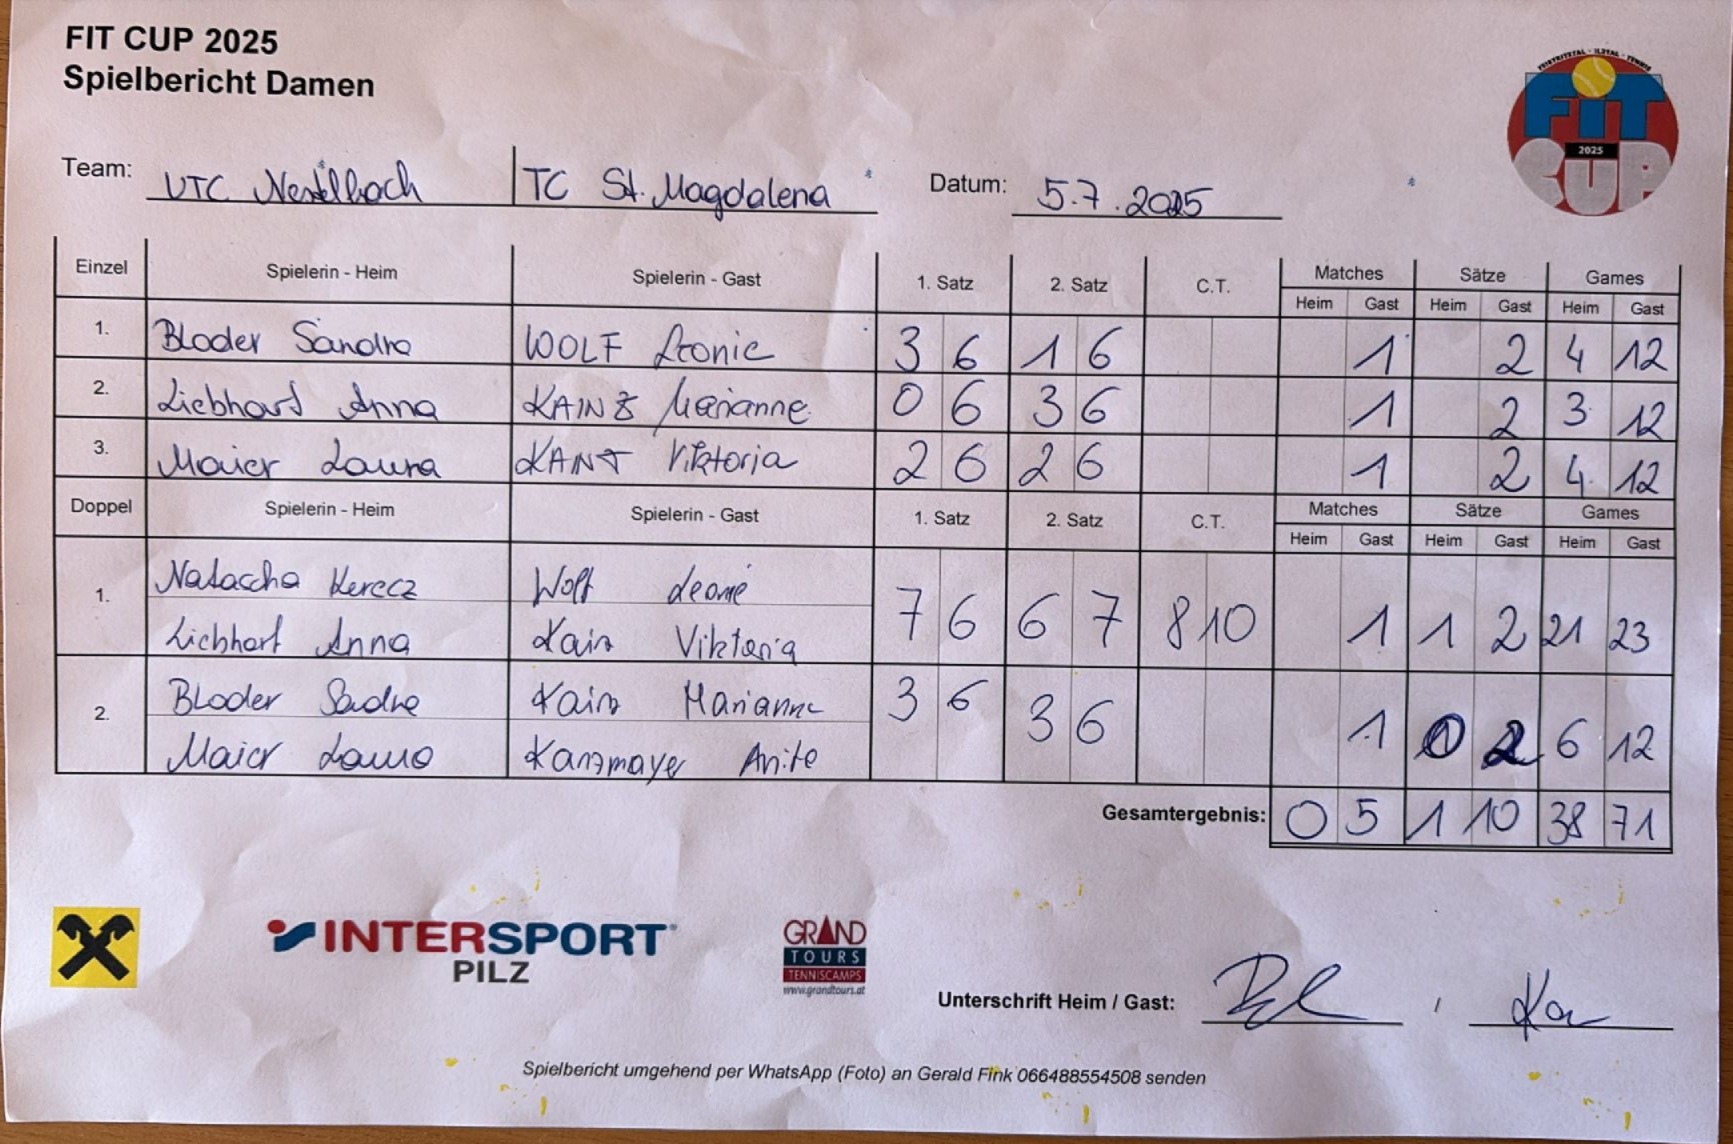 FIT CUP 2025
Spielbericht Damen
FEISTRITZTAL - ILZTAL - TENNIS
FiT
2025
CUP
Team: UTC Nestelbach TC St. Magdalena Datum: 5.7.2025
Einzel Spielerin - Heim Spielerin - Gast 1. Satz 2. Satz C.T. Matches Sätze Games
Heim Gast Heim Gast Heim Gast
1. Bloder Sandra WOLF Leonie 3 6 1 6 1 2 4 12
2. Liebhart Anna KAINZ Marianne 0 6 3 6 1 2 3 12
3. Maier Laura KAINZ Viktoria 2 6 2 6 1 2 4 12
Doppel Spielerin - Heim Spielerin - Gast 1. Satz 2. Satz C.T. Matches Sätze Games
Heim Gast Heim Gast Heim Gast
Natascha Kerecz Wolf Leonie
1. 7 6 6 7 8 10 1 1 2 21 23
Liebhart Anna Kainz Viktoria
Bloder Sandra Kainz Marianne 3 6
2. 3 6 1 0 2 6 12
Maier Laura Kanzmayer Anita
Gesamtergebnis: 0 5 1 10 38 71
INTERSPORT
PILZ
GRAND
TOURS
TENNISCAMPS
www.grandtours.at
Unterschrift Heim / Gast: /
Spielbericht umgehend per WhatsApp (Foto) an Gerald Fink 066488554508 senden